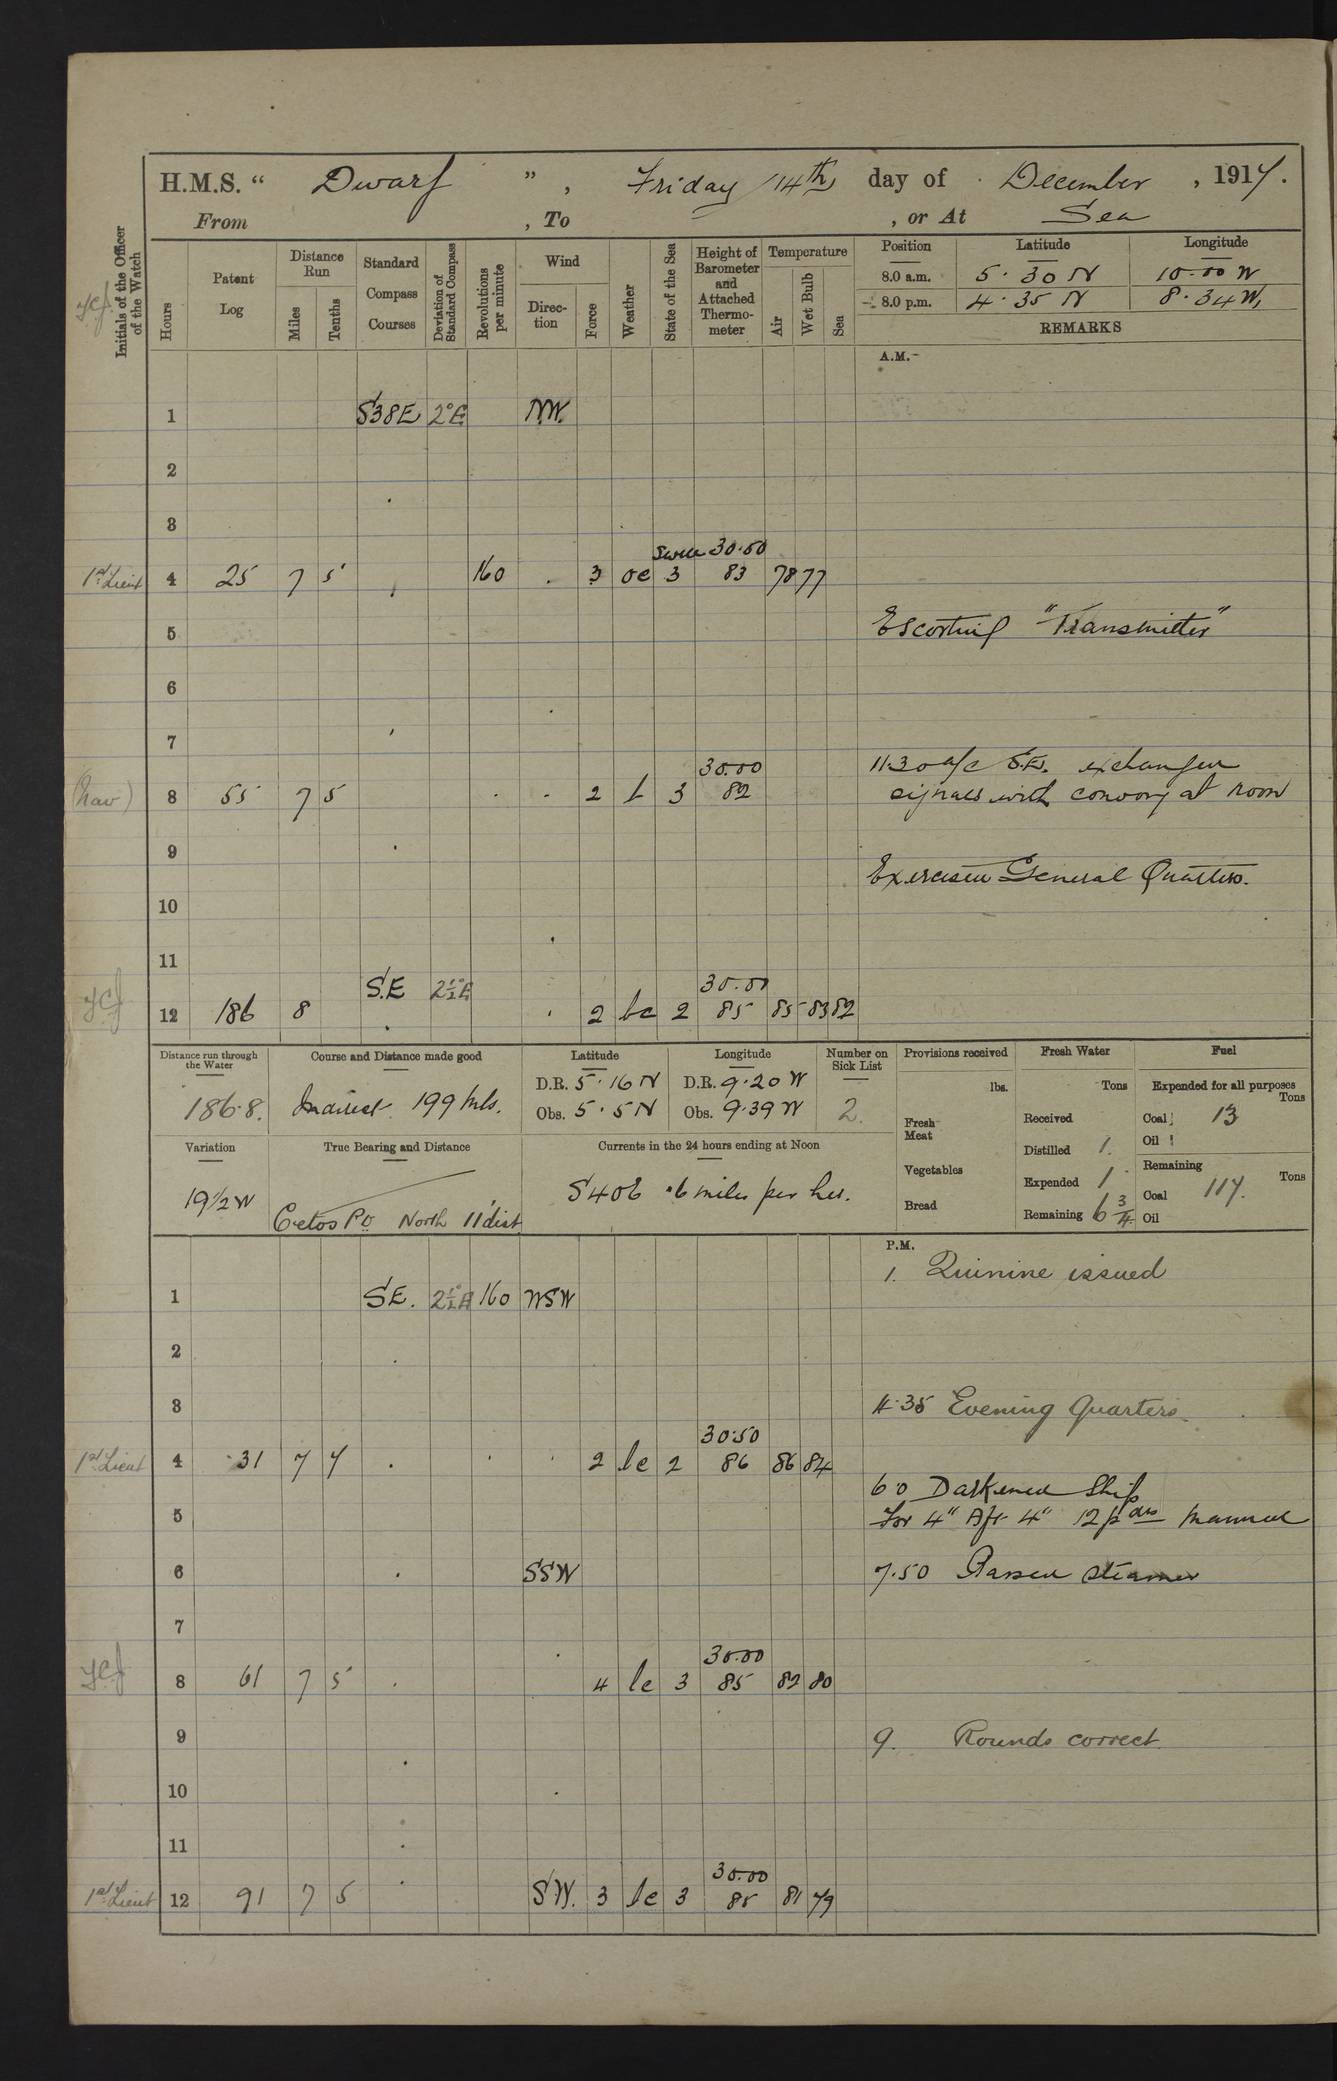 H.M.S. " Dwarf " , Friday 14th day of December , 1917.
From , To , or At Sea
Initials of the Officer of the Watch
Hours
Patent Log
Distance Run
Miles
Tenths
Standard Compass Courses
Deviation of Standard Compass
Revolutions per minute
Wind
Direction
Force
Weather
State of the Sea
Height of Barometer and Attached Thermometer
Temperature
Air
Wet Bulb
Sea
Position Latitude Longitude
8.0 a.m. 5.30 N 10.00 W
8.0 p.m. 4.35 N 8.34 W,
REMARKS
A.M.-
1 S38E 2°E N.W.
2
3
Swell 30.50
1st Lieut 4 25 7 5 160 . 3 oc 3 83 78 77
5 Escorting "Transmitter"
6
7
30.00 11.30 a/c S.E. exchanged
(Nav) 8 55 7 5 . . 2 b 3 82 signals with convoy at noon
9
Exercised General Quarters.
10
11
S.E 2½°E 30.00
12 186 8 . 2 bc 2 85 85 83 82
Distance run through the Water
186.8.
Course and Distance made good
Indirect 199 mls.
Latitude
D.R. 5.16 N
Obs. 5.5 N
Longitude
D.R. 9.20 W
Obs. 9.39 W
Number on Sick List
2.
Provisions received
lbs.
Fresh Meat
Vegetables
Bread
Fresh Water
Tons
Received
Distilled 1.
Expended 1
Remaining 6 3/4
Fuel
Expended for all purposes
Tons
Coal 13
Oil
Remaining
Tons
Coal 117.
Oil
Variation
19½ W
True Bearing and Distance
Cetos Pt North 11 dist
Currents in the 24 hours ending at Noon
S40E .6 miles per hr.
P.M.
1. Quinine issued
1 SE. 2½°E 160 WSW
2
3 4.35 Evening Quarters.
30.50
1st Lieut 4 31 7 7 . . . 2 bc 2 86 86 84
6.0 Darkened Ship
5 For 4" Aft 4" 12pdrs manned
6 . SSW 7.50 Passed steamer
7
30.00
8 61 7 5 . 4 bc 3 85 82 80
9 9. Rounds correct.
10
11
30.00
1st Lieut 12 91 7 5 . SW. 3 bc 3 85 81 79